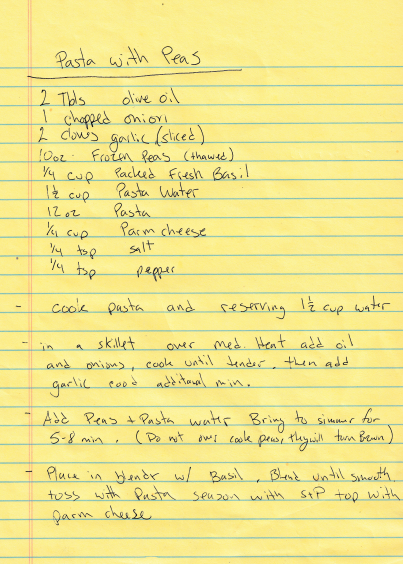 Pasta with Peas
2 Tbls olive oil
1 chopped onion
2 cloves garlic (sliced)
10oz. Frozen Peas (thawed)
1/4 cup Packed Fresh Basil
1 1/2 cup Pasta Water
12 oz Pasta
1/4 cup Parm cheese
1/4 tsp salt
1/4 tsp pepper
- cook pasta and reserving 1 1/2 cup water
- in a skillet over med. Heat add oil
and onions, cook until tender, then add
garlic cook additional min.
- Add Peas + Pasta water Bring to simmer for
5-8 min. (Do not over cook peas, they will turn Brown)
- Place in blendr w/ Basil, Blend until smooth,
toss with Pasta season with s+P top with
parm cheese